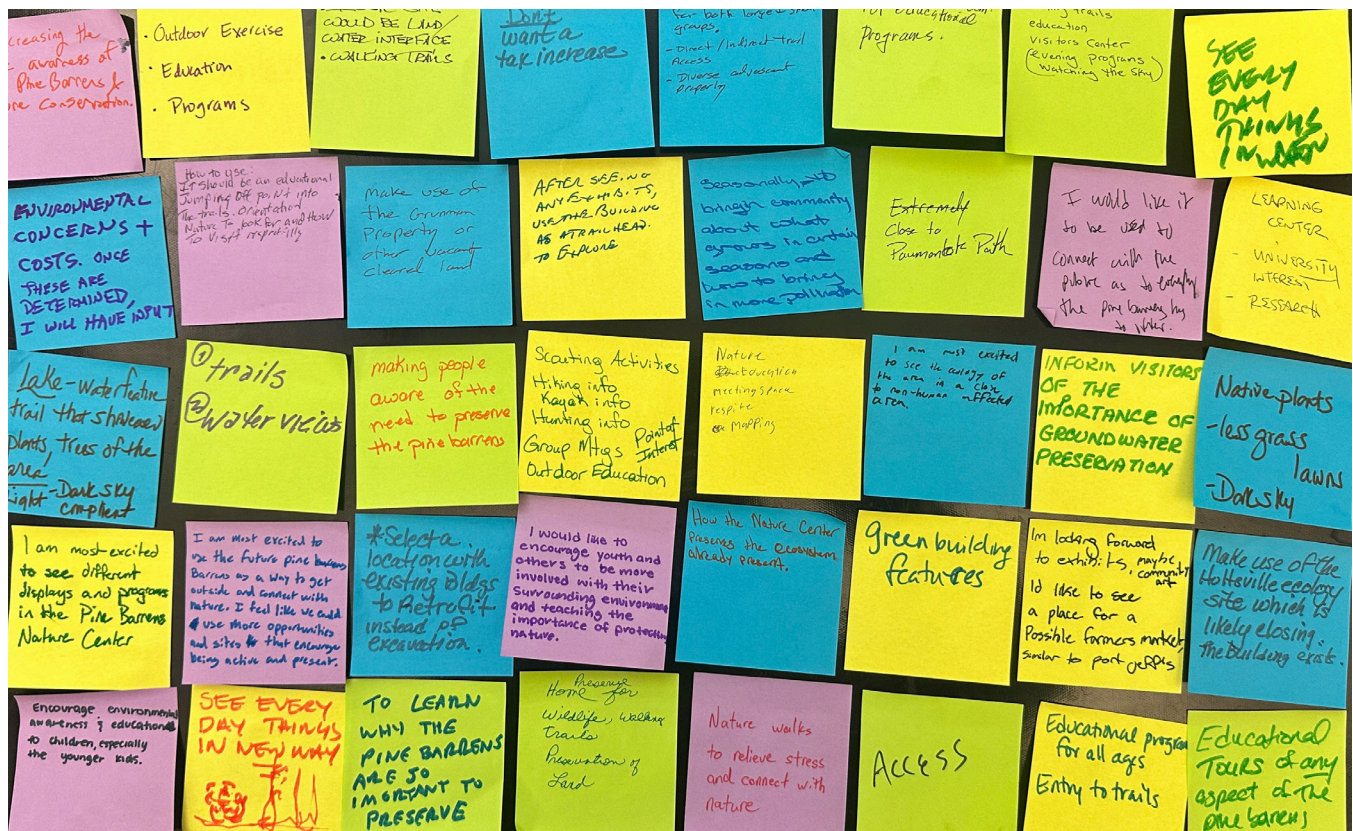 creasing the
awareness of
Pine Barrens &
Conservation.
• Outdoor Exercise
• Education
• Programs
WOULD BE LAND/
WATER INTERFACE
• WALKING TRAILS
Don't
want a
tax increase
for both large & small
groups.
- Direct/Indirect trail
Access
- Diverse adjascent
property
for educational
Programs.
trails
education
Visitors Center
(evening programs
watching the sky)
SEE
EVERY
DAY
THINGS
IN
ENVIRONMENTAL
CONCERNS +
COSTS. ONCE
THESE ARE
DETERMINED,
I WILL HAVE INPUT
How to use:
It should be an educational
Jumping off point into
The trails. Orientation
Nature To look for and How
To Visit
Make use of
the Grumman
Property or
other vacant
cleared land
AFTER SEEING
ANY EXHIBITS,
USE THE BUILDING
AS A TRAILHEAD.
TO EXPLORE
Seasonally, to
bring in community
about
grows in certain
seasons and
to bring
in more pollinator
Extremely
Close to
Paumonok Path
I would like it
to be used to
connect with the
public as to
the pine barrens has
to offer.
LEARNING
CENTER
- UNIVERSITY
INTEREST
- RESEARCH
Lake - Water feature
trail that
plants, trees of the
area
- Dark sky
complient
① trails
② water views
making people
aware of the
need to preserve
the pine barrens
Scouting Activities
Hiking info
Kayak info
Hunting info
Group Mtgs Point of
Interest
Outdoor Education
Nature
Education
meeting space
respite
mapping
I am most excited
to see the ecology of
the area in a close
to non-human affected
area.
INFORM VISITORS
OF THE
IMPORTANCE OF
GROUNDWATER
PRESERVATION
Native plants
- less grass
lawns
- Dark sky
I am most excited
to see different
displays and programs
in the Pine Barrens
Nature Center
I am most excited to
use the future pine barrens
Barrens as a way to get
outside and connect with
nature. I feel like we could
use more opportunities
and sites that encourage
being active and present.
*Select a
location with
existing Bldgs
to Retrofit
instead of
excavation.
I would like to
encourage youth and
others to be more
involved with their
surrounding environment
and teaching the
importance of protecting
nature.
How the Nature Center
preserves the ecosystem
already present.
Green building
features
Im looking forward
to exhibits, maybe,
community
art
I'd like to see
a place for a
Possible farmers market,
similar to port jeffs
Make use of the
Holtsville ecology
site which is
likely closing.
The Building exists.
Encourage environmental
awareness & education
to children, especially
the younger kids.
SEE EVERY
DAY THINGS
IN NEW WAY
TO LEARN
WHY THE
PINE BARRENS
ARE SO
IMPORTANT TO
PRESERVE
Preserve
Home for
Wildlife, Walking
trails
Preservation of
Land
Nature walks
to relieve stress
and connect with
nature
Access
Educational program
for all ages
Entry to trails
Educational
Tours of any
aspect of the
pine barrens